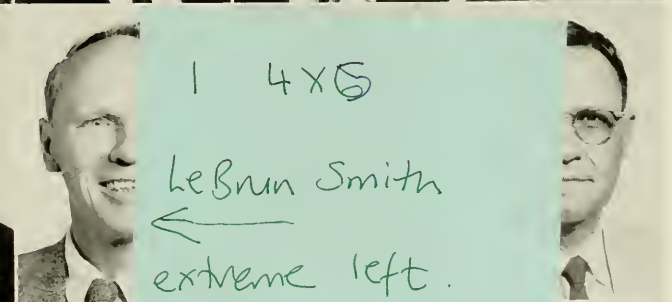 1 4x5
LeBrun Smith
extreme left.